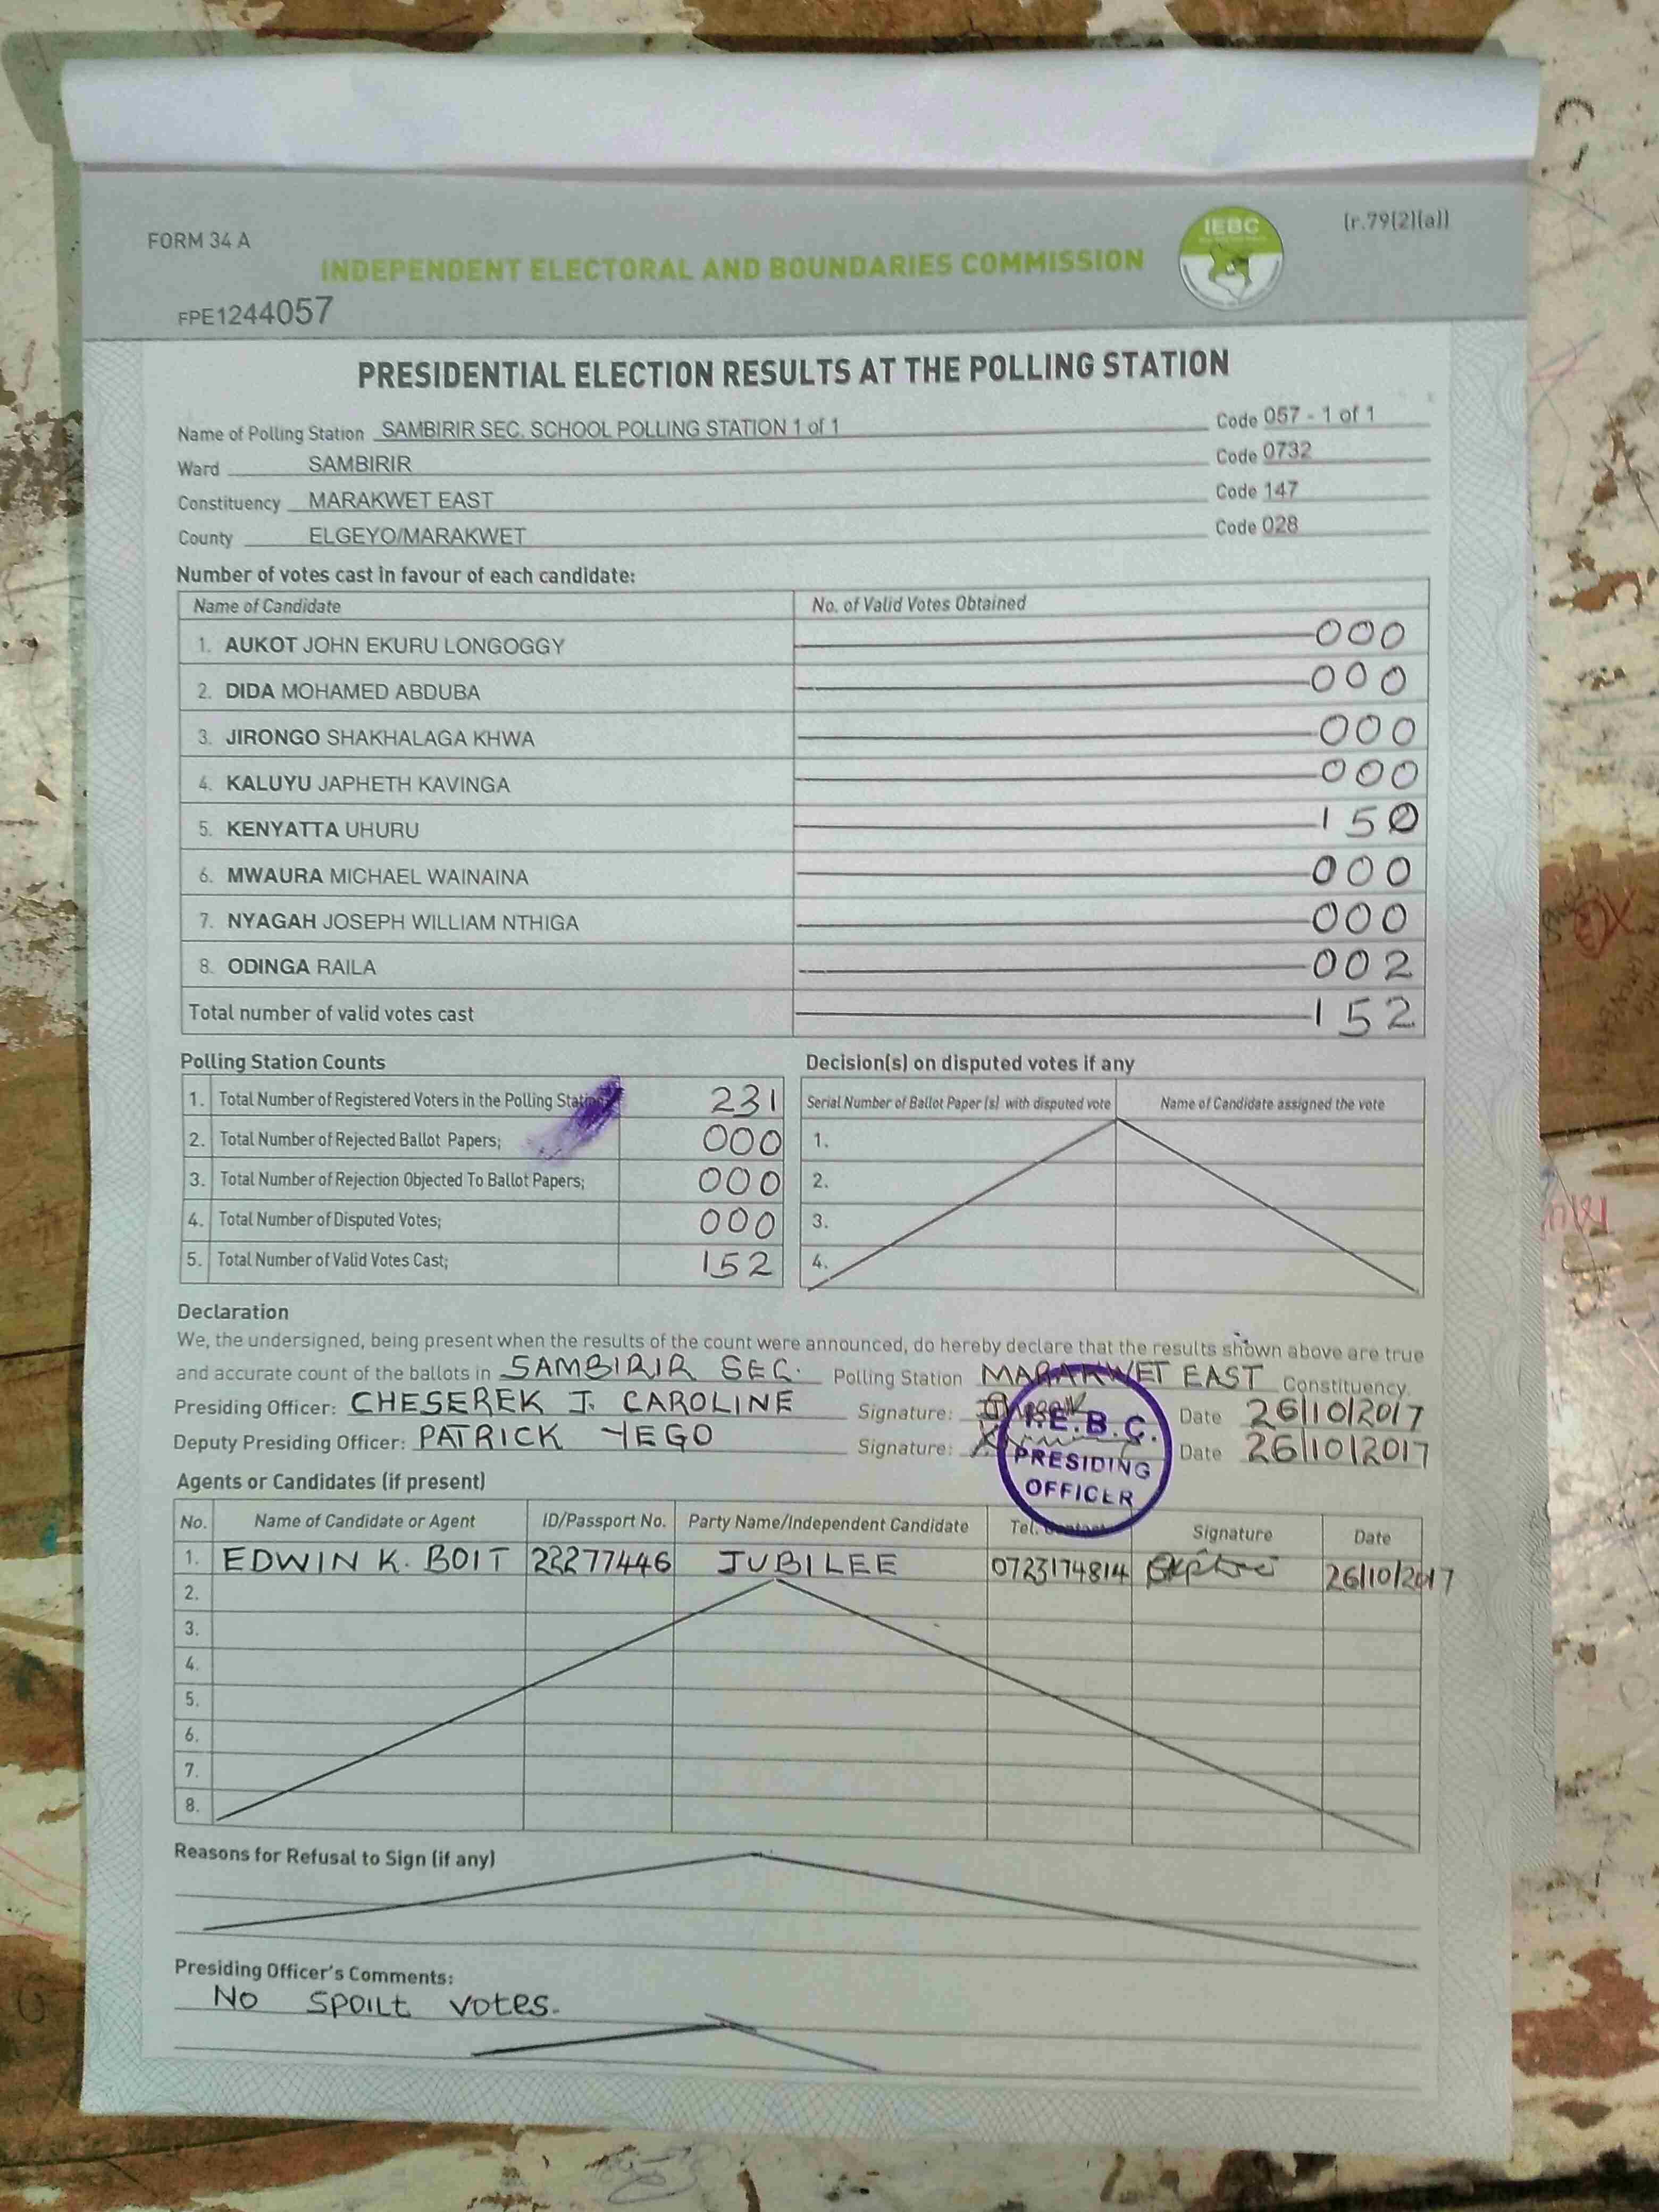 FORM 34 A
(r.79(2)(a))
IEBC
INDEPENDENT ELECTORAL AND BOUNDARIES COMMISSION
FPE1244057
PRESIDENTIAL ELECTION RESULTS AT THE POLLING STATION
Name of Polling Station SAMBIRIR SEC. SCHOOL POLLING STATION 1 of 1 Code 057 - 1 of 1
Ward SAMBIRIR Code 0732
Constituency MARAKWET EAST Code 147
County ELGEYO/MARAKWET Code 028
Number of votes cast in favour of each candidate:
Name of Candidate No. of Valid Votes Obtained
1. AUKOT JOHN EKURU LONGOGGY 000
2. DIDA MOHAMED ABDUBA 000
3. JIRONGO SHAKHALAGA KHWA 000
4. KALUYU JAPHETH KAVINGA 000
5. KENYATTA UHURU 150
6. MWAURA MICHAEL WAINAINA 000
7. NYAGAH JOSEPH WILLIAM NTHIGA 000
8. ODINGA RAILA 002
Total number of valid votes cast 152
Polling Station Counts
1. Total Number of Registered Voters in the Polling Station 231
2. Total Number of Rejected Ballot Papers; 000
3. Total Number of Rejection Objected To Ballot Papers; 000
4. Total Number of Disputed Votes; 000
5. Total Number of Valid Votes Cast; 152
Decision(s) on disputed votes if any
Serial Number of Ballot Paper (s) with disputed vote Name of Candidate assigned the vote
1.
2.
3.
4.
Declaration
We, the undersigned, being present when the results of the count were announced, do hereby declare that the results shown above are true
and accurate count of the ballots in SAMBIRIR SEC. Polling Station MARAKWET EAST Constituency.
Presiding Officer: CHESEREK J. CAROLINE Signature: Date 26/10/2017
Deputy Presiding Officer: PATRICK YEGO Signature: Date 26/10/2017
I.E.B.C.
PRESIDING
OFFICER
Agents or Candidates (if present)
No. Name of Candidate or Agent ID/Passport No. Party Name/Independent Candidate Tel. Contact Signature Date
1. EDWIN K. BOIT 22277446 JUBILEE 0723174814 26/10/2017
2.
3.
4.
5.
6.
7.
8.
Reasons for Refusal to Sign (if any)
Presiding Officer's Comments:
No SPOILt votes.